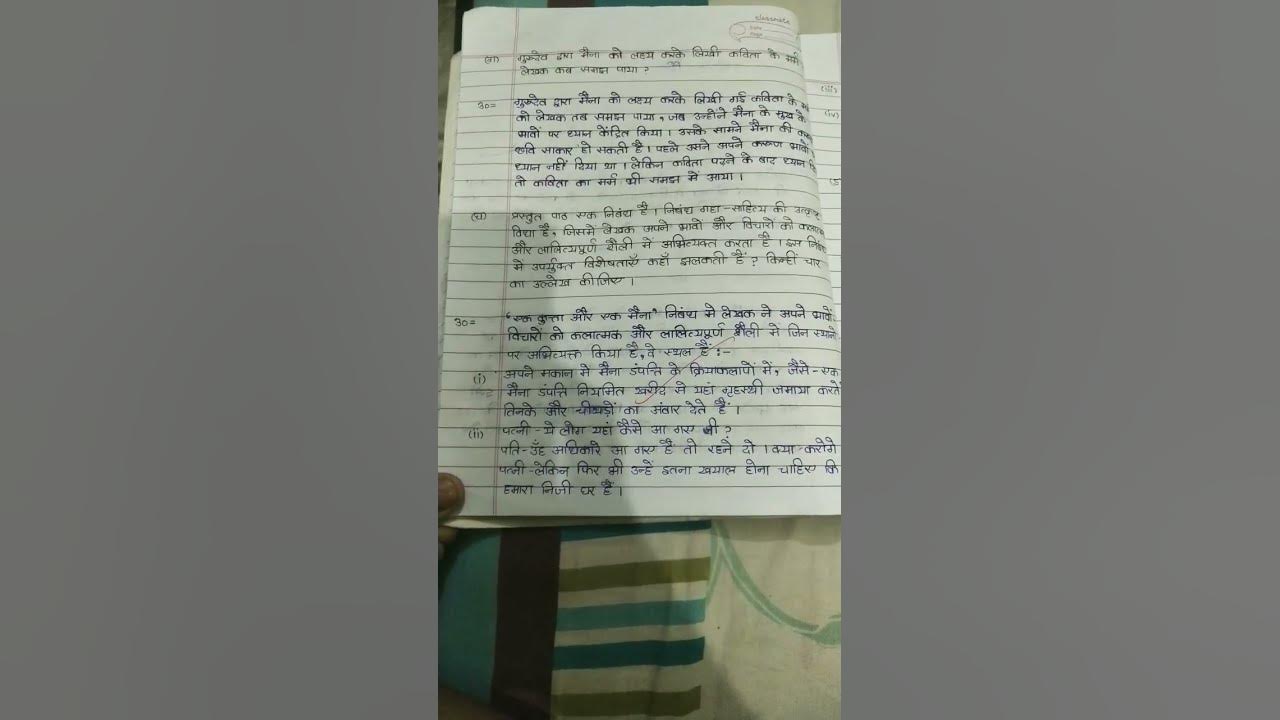 classmate
Date
Page
(ग) गुरूदेव द्वारा मैना को लक्ष्य करके लिखी कविता के मर्म
लेखक कब समझ पाया ?
उ०= गुरूदेव द्वारा मैना को लक्ष्य करके लिखी गई कविता के मर्म
को लेखक तब समझ पाया, जब उन्होंने मैना के मुख के
भावों पर ध्यान केंद्रित किया। उसके सामने मैना की
छवि साकार हो सकती है। पहले उसने अपने करूण भावों
ध्यान नहीं दिया था। लेकिन कविता पढ़ने के बाद ध्यान
तो कविता का मर्म भी समझ में आया।
(घ) प्रस्तुत पाठ एक निबंध है। निबंध गद्य-साहित्य की उत्कृष्ट
विद्या है, जिसमें लेखक अपने भावों और विचारों को
और लालित्यपूर्ण शैली में अभिव्यक्त करता है। इस निबंध
में उपर्युक्त विशेषताएँ कहाँ झलकती हैं ? किन्हीं चार
का उल्लेख कीजिए।
उ०= "एक कुत्ता और एक मैना" निबंध में लेखक ने अपने भावों
विचारों को कलात्मक और लालित्यपूर्ण शैली में जिन स्थानों
पर अभिव्यक्त किया है, वे स्थल हैं :-
(i) अपने मकान में मैना दंपत्ति के क्रियाकलापों में, जैसे - एक
मैना दंपत्ति नियमित से यहां गृहस्थी जमाया करते
तिनके और चीथड़ों का अंबार देते हैं।
(ii) पत्नी - ये लोग यहां कैसे आ गए जी ?
पति - उँह आ गए हैं तो रहने दो। क्या करोगे
पत्नी - लेकिन फिर भी उन्हें इतना खयाल होना चाहिए कि
हमारा निजी घर है।
(iii)
(iv)